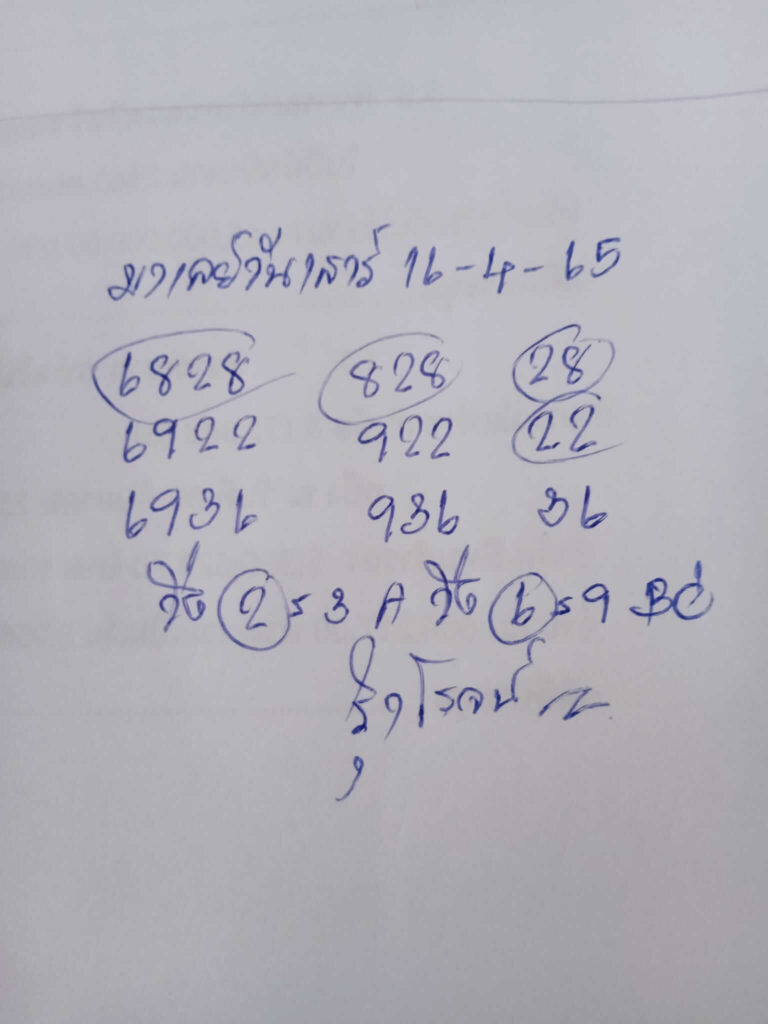 มาเลย์วันเสาร์ 16-4-65
6828 828 28
6922 922 22
6936 936 36
วิ่ง 2 ร 3 A วิ่ง 6 ร 9 BC
รุ่งโรจน์